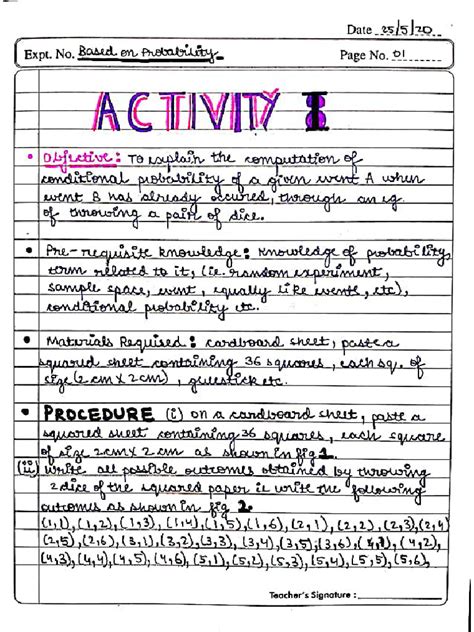 Date 25/5/20
Expt. No. Based on Probability
Page No. 01
ACTIVITY 1
• Objective: To explain the computation of
conditional probability of a given event A when
event B has already occured, through an eg.
of throwing a pair of dice.
• Pre-requisite knowledge: knowledge of probability,
term related to it, (ie. random experiment,
sample space, event, equally like events, etc),
conditional probability etc.
• Materials Required: cardboard sheet, paste a
squared sheet containing 36 squares, each sq. of
size (2 cm x 2 cm), gluestick etc.
• PROCEDURE (i) on a cardboard sheet, paste a
squared sheet containing 36 squares, each square
of size 2cm x 2 cm as shown in fig 1.
(ii) write all possible outcomes obtained by throwing
2 dice of the squared paper ie write the following
outcomes as shown in fig 2.
(1,1), (1,2), (1,3), (1,4), (1,5), (1,6), (2,1), (2,2), (2,3), (2,4)
(2,5), (2,6), (3,1), (3,2), (3,3), (3,4), (3,5), (3,6), (4,1), (4,2),
(4,3), (4,4), (4,5), (4,6), (5,1), (5,2), (5,3), (5,4), (5,5), (5,6),
Teacher's Signature :